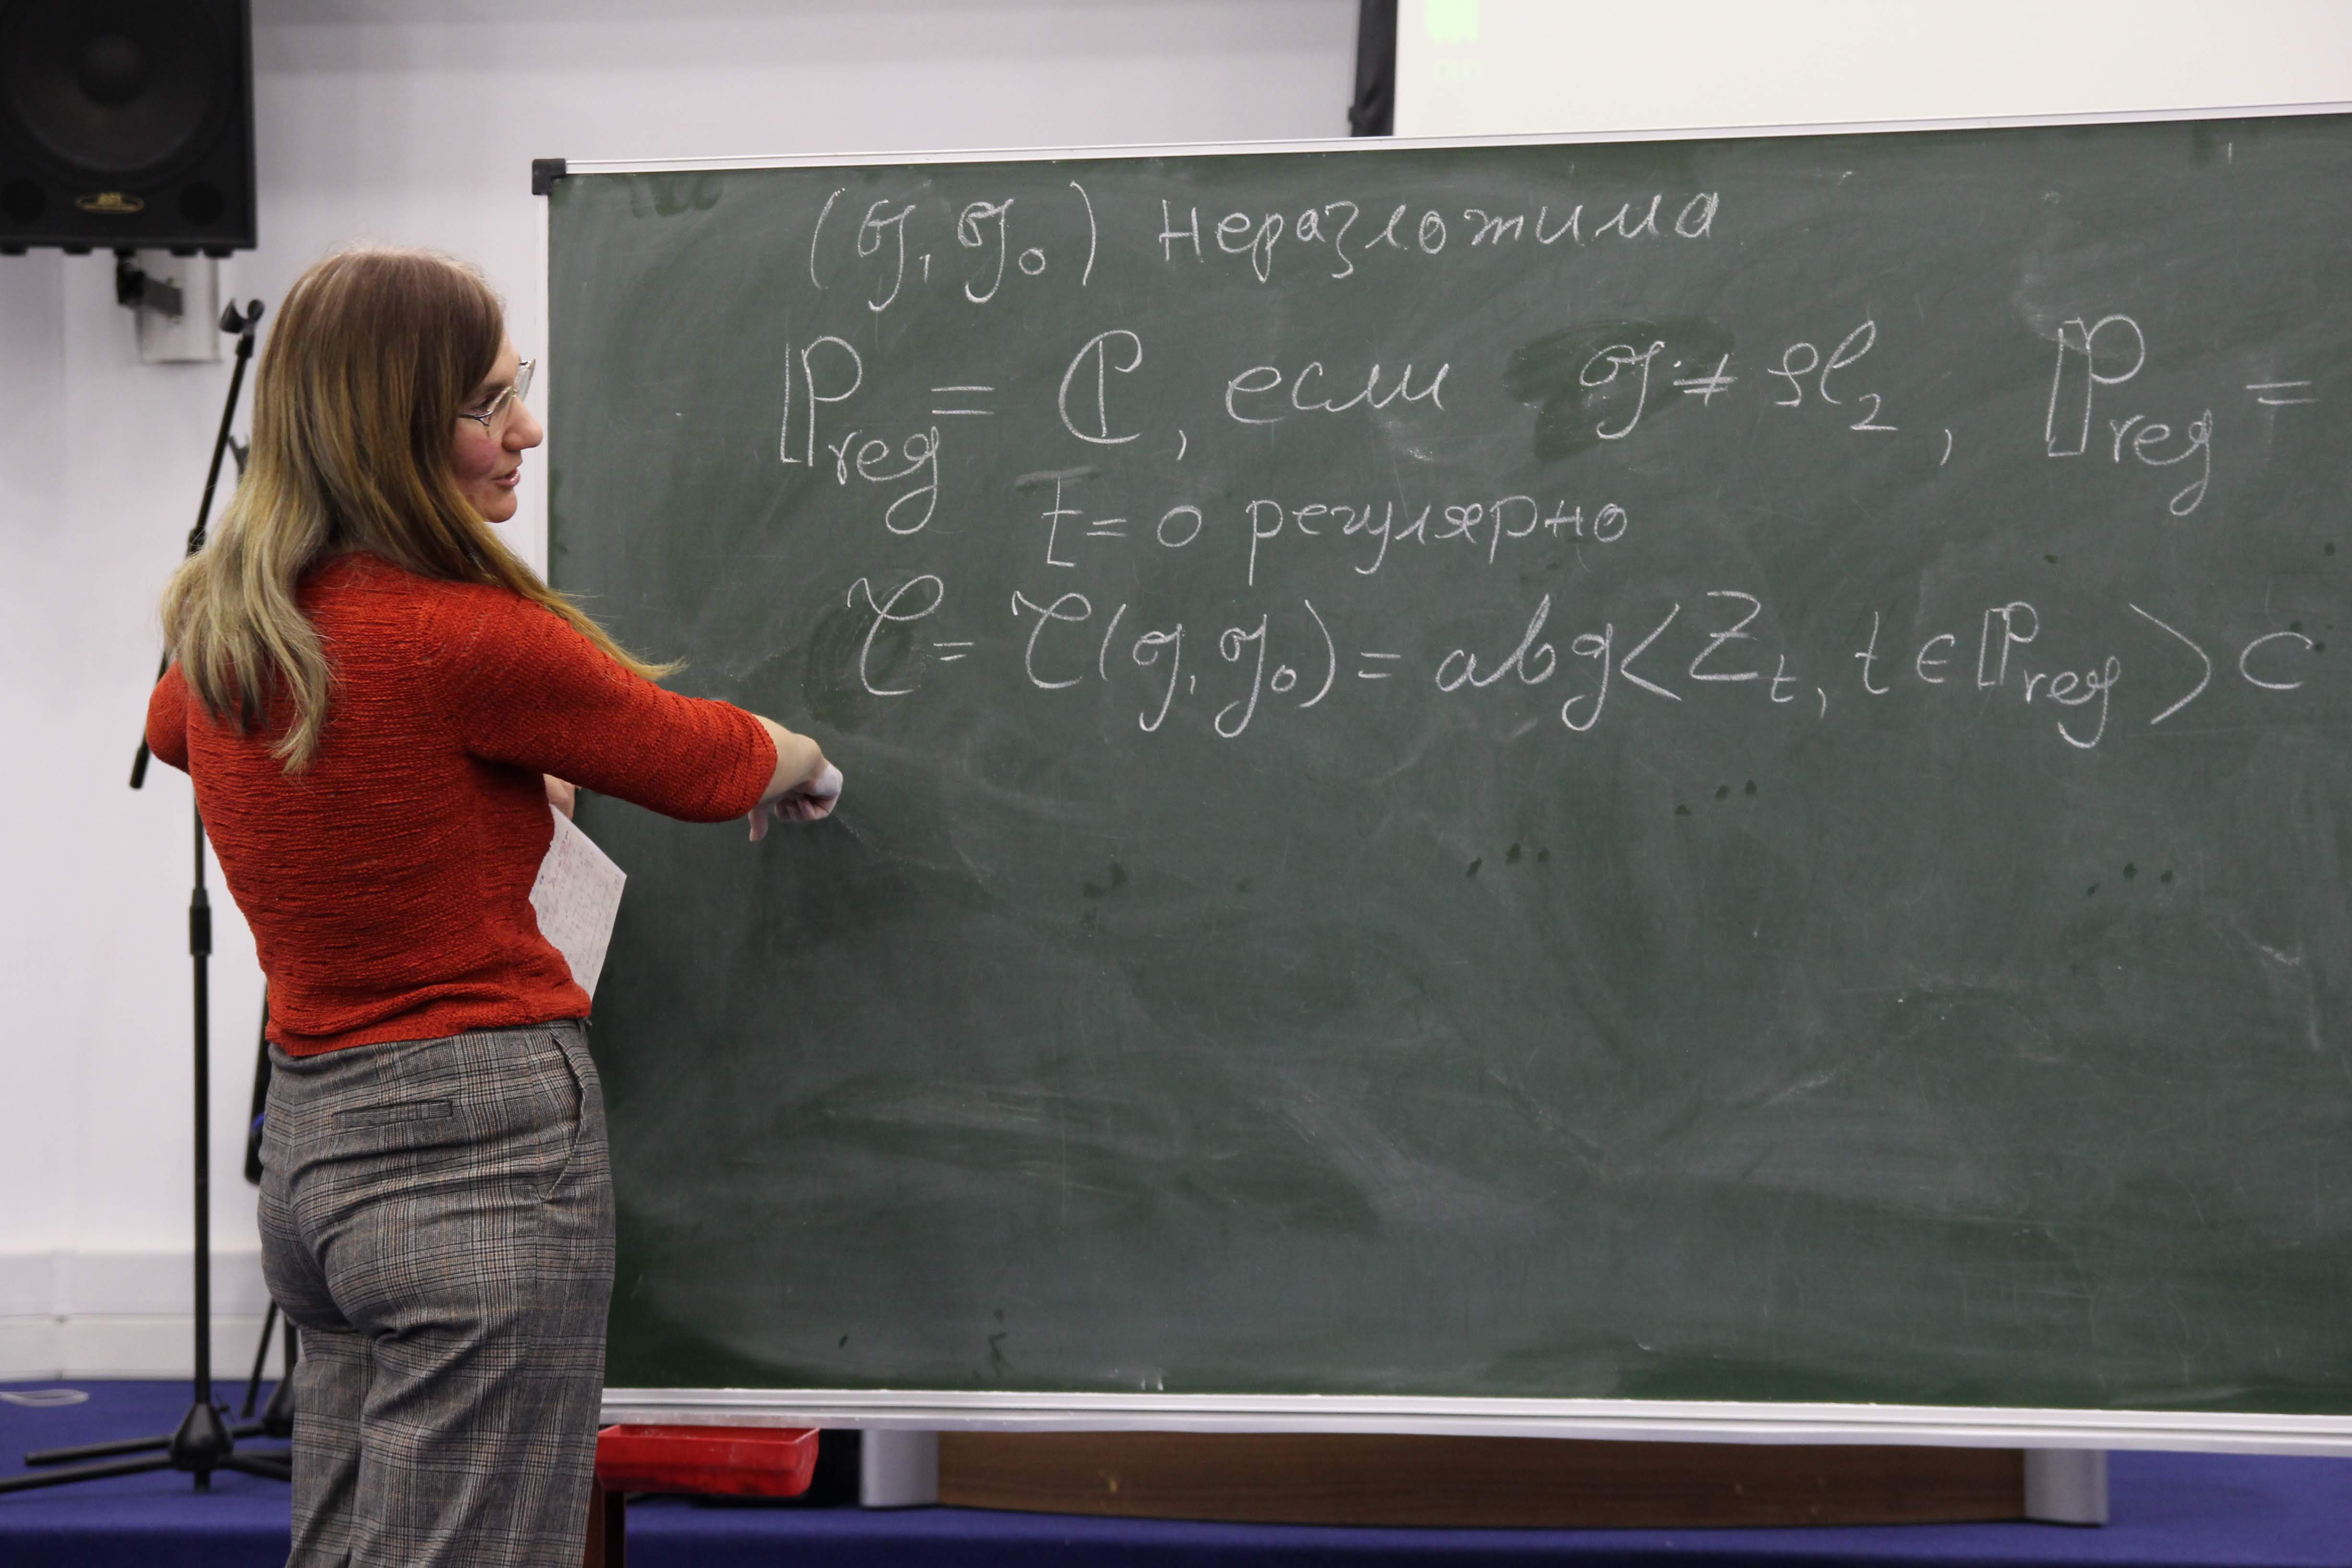 (𝔤, 𝔤₀) неразложима
ℙ_reg = ℙ, если 𝔤 ≠ sl₂, ℙ_reg =
t = 0 регулярно
𝒞 = 𝒞(𝔤, 𝔤₀) = alg<Z_t, t ∈ ℙ_reg> ⊂